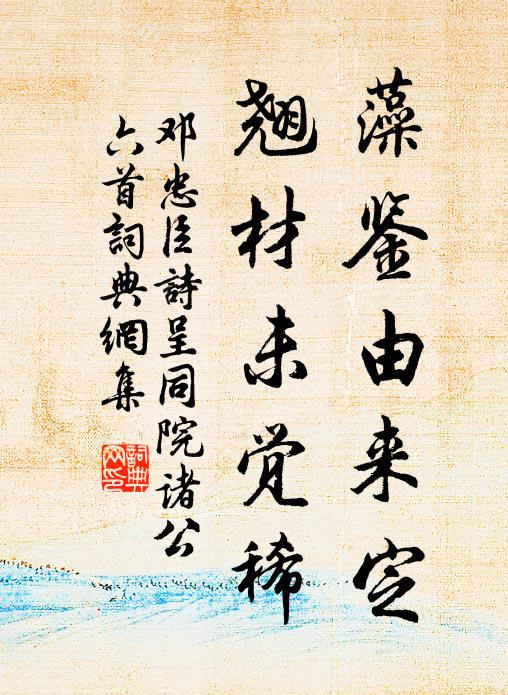 藻鉴由来定
翘材未觉稀
邓忠臣詩呈同院诸公
六首詞典網集
詞典
网印